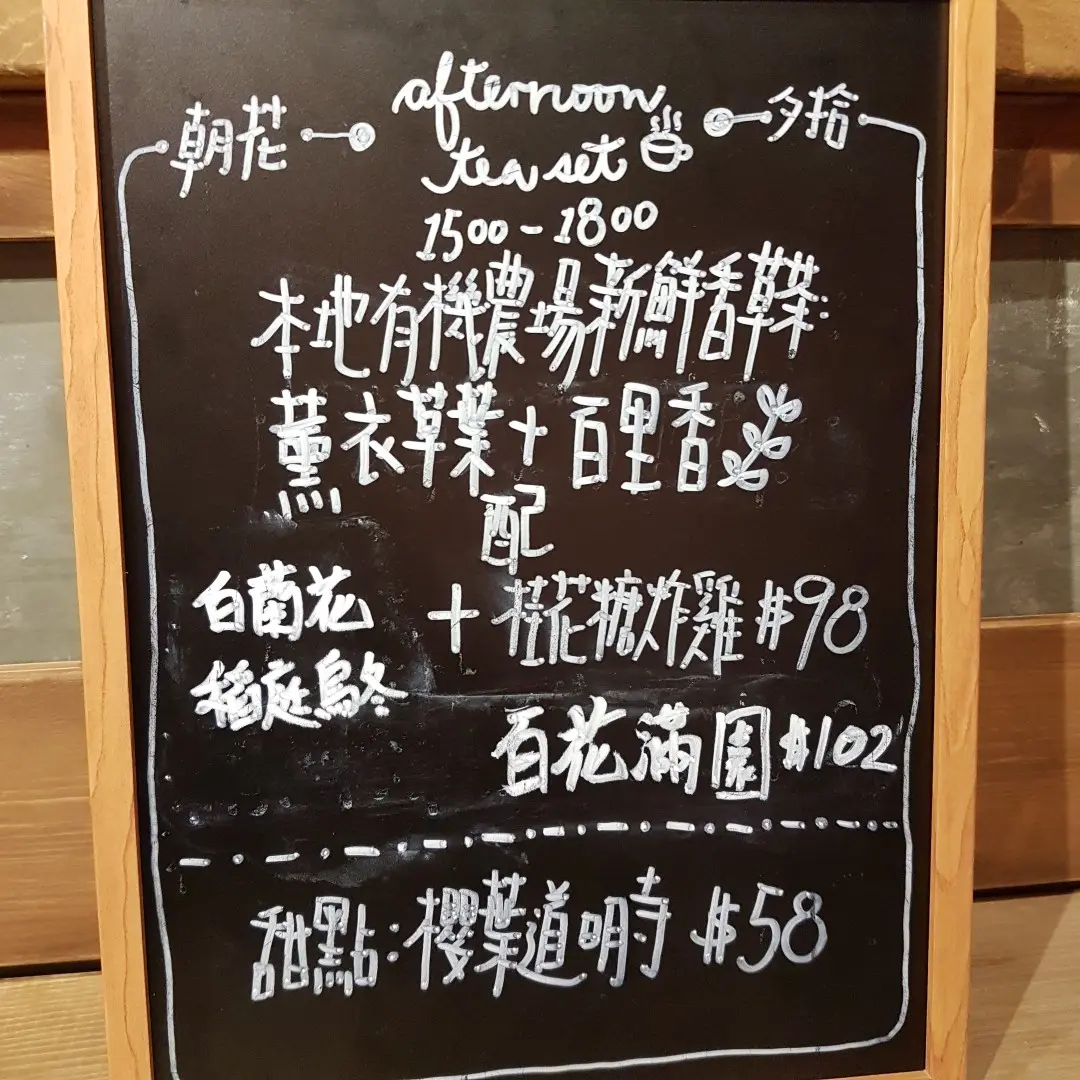 朝花 afternoon 夕拾
tea set
1500-1800
本地有機農場新鮮香草茶:
薰衣草葉+百里香
配
白蘭花 + 桂花糖炸雞 $98
稻庭烏冬
百花滿園 $102
甜點:櫻葉道明寺 $58